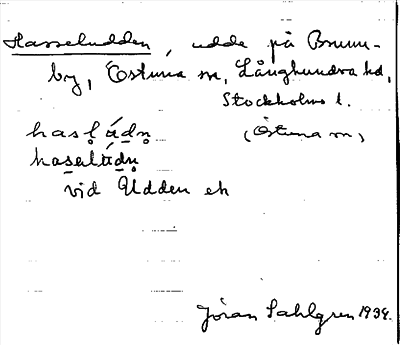 Hasseludden, udde på Brunn-
by, Estuna sn, Långhundra hd,
Stockholms l.
hasl̥ádn̥ (Östuna sn)
hasəlúdn̥
vid Udden ek
Jöran Sahlgren 1934.